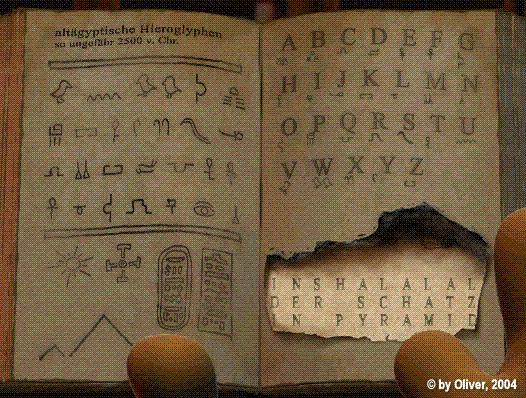 altägyptische Hieroglyphen
so ungefähr 2500 v. Chr.
A B C D E F G
H I J K L M N
O P Q R S T U
V W X Y Z
INSHALALAL
DER SCHATZ
IN PYRAMID
© by Oliver, 2004